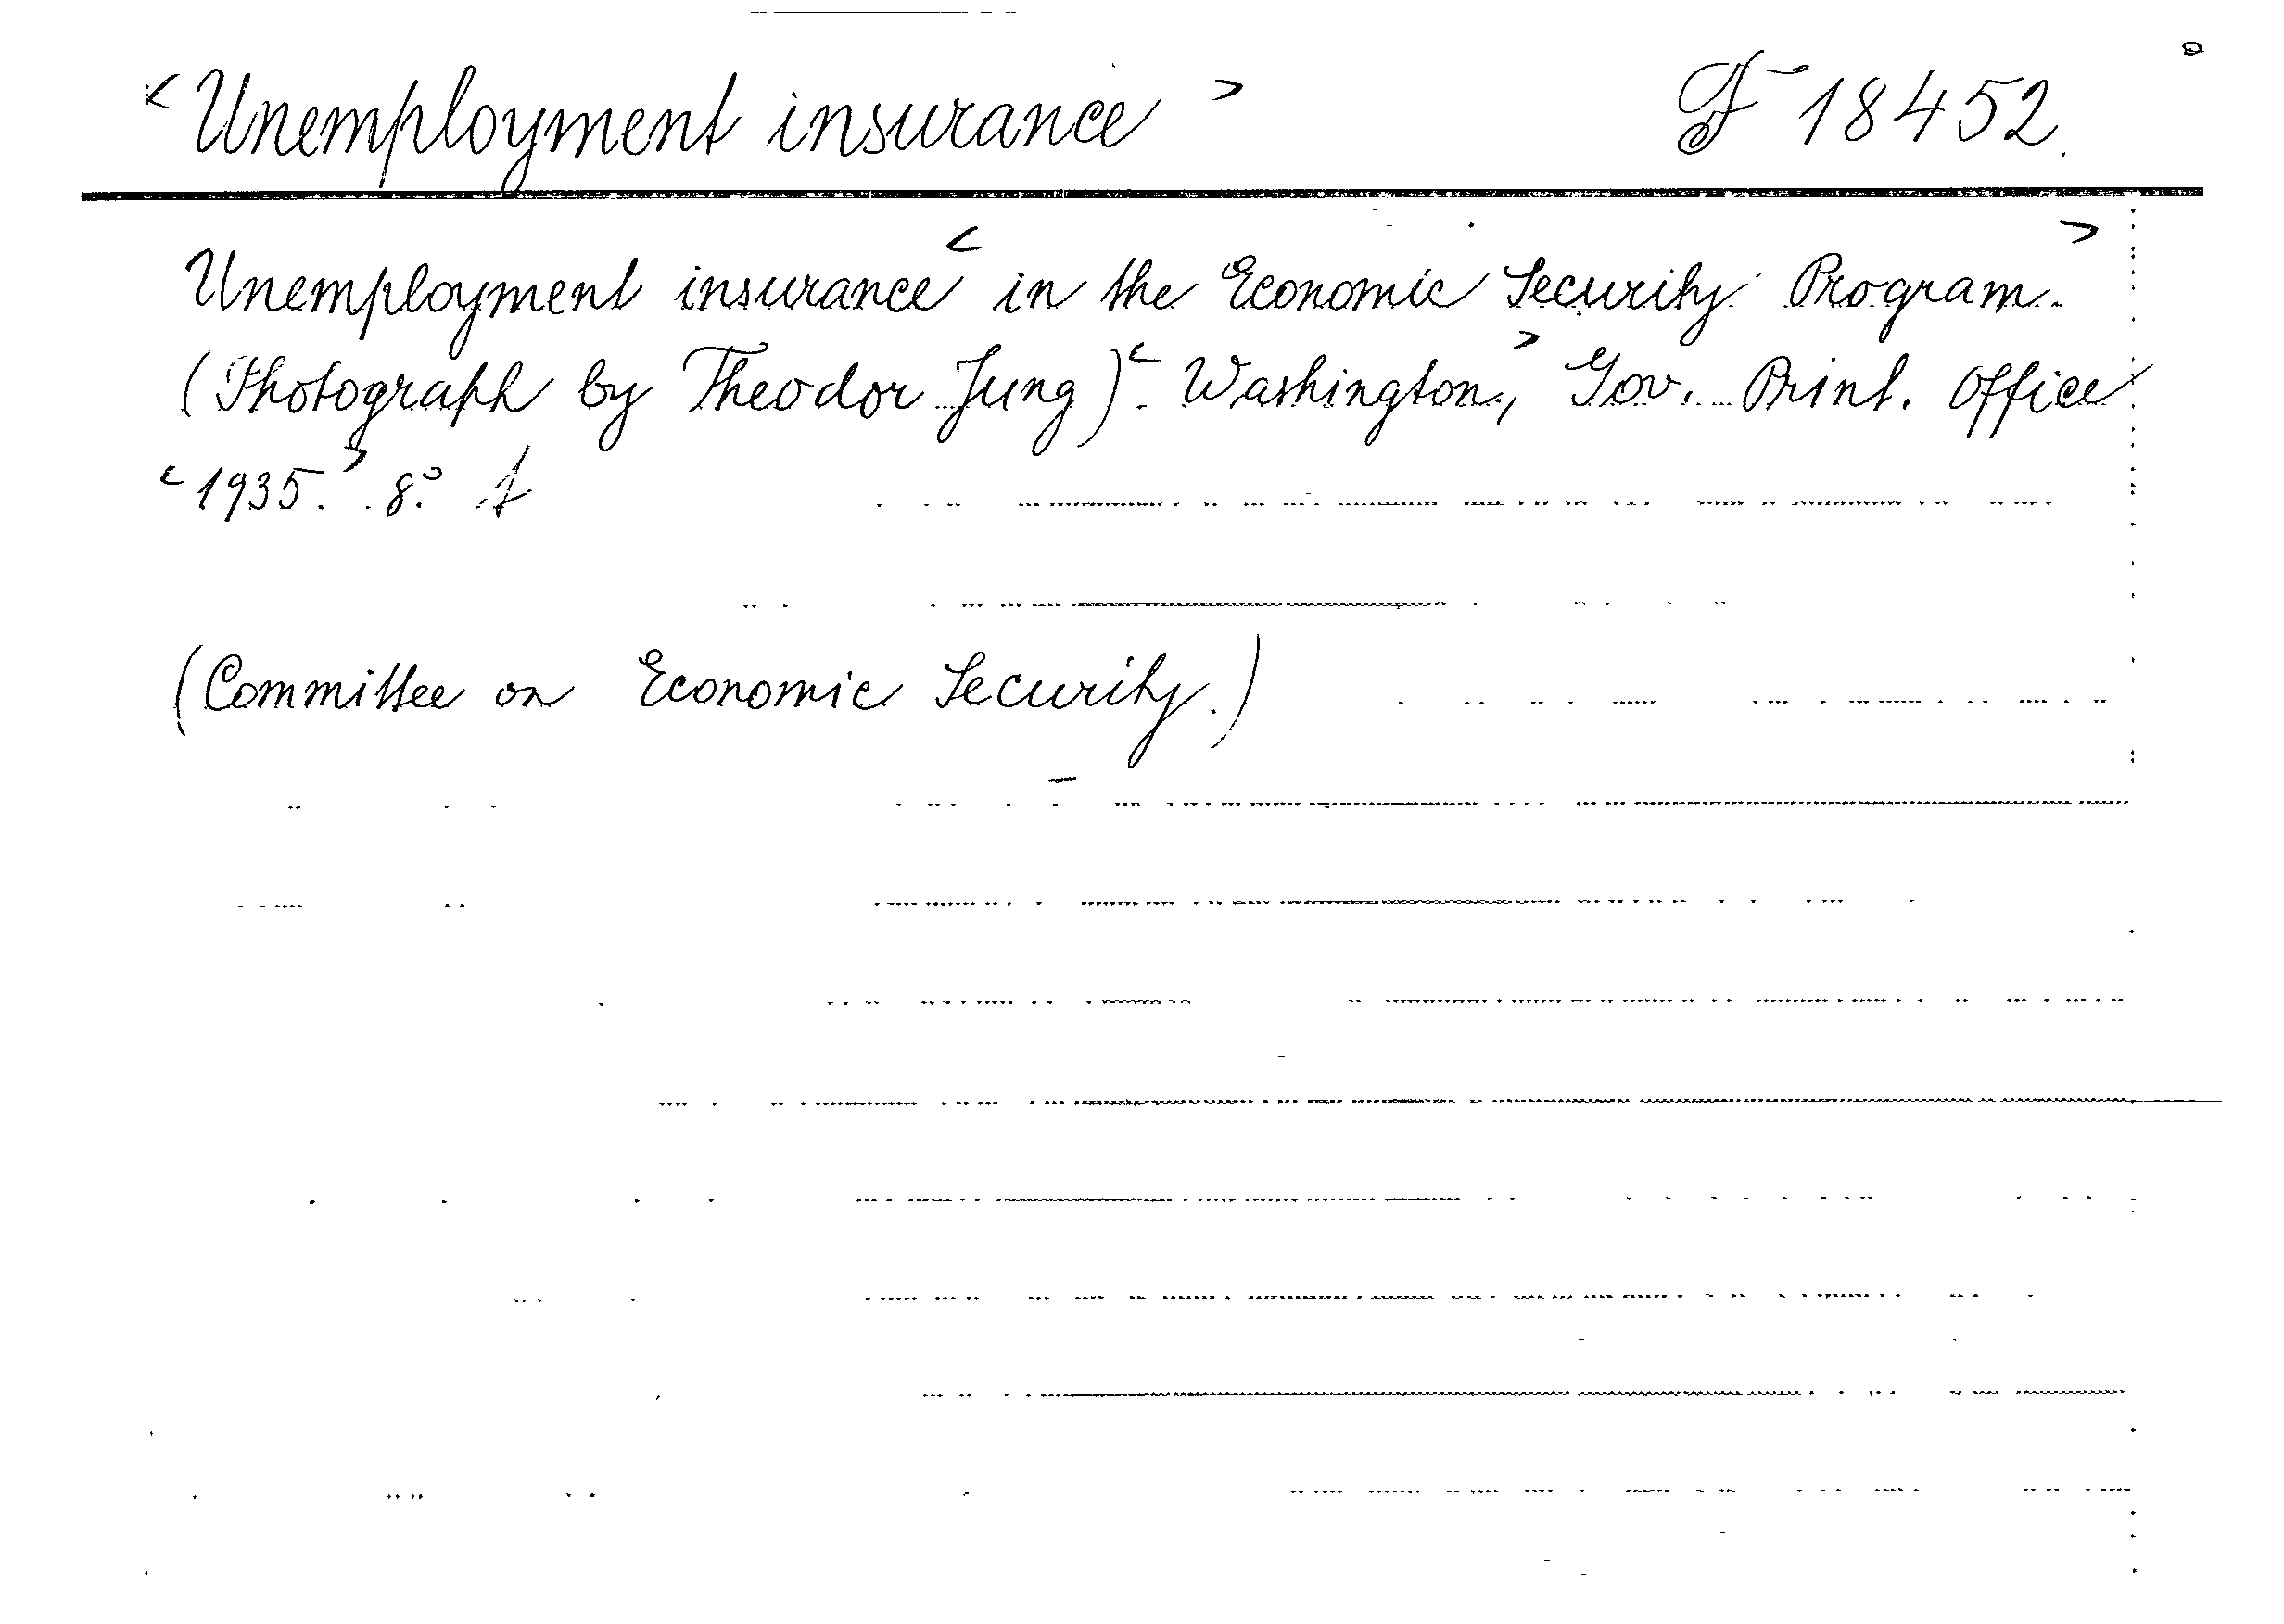 < Unemployment insurance > F 18452.
Unemployment insurance < in the Economic Security Program. >
(Photograph by Theodor Jung) < . Washington, > Gov. Print. Office
< 1935. > 8°.
(Committee on Economic Security.)